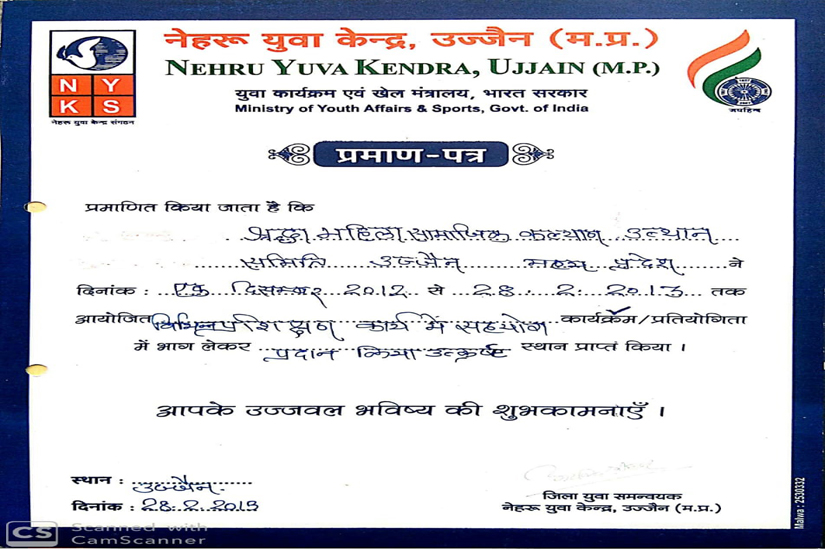 नेहरू युवा केन्द्र, उज्जैन (म.प्र.)
NEHRU YUVA KENDRA, UJJAIN (M.P.)
युवा कार्यक्रम एवं खेल मंत्रालय, भारत सरकार
Ministry of Youth Affairs & Sports, Govt. of India
NY
KS
नेहरू युवा केन्द्र संगठन
जयहिन्द
प्रमाण-पत्र
प्रमाणित किया जाता है कि
श्रद्धा महिला सामाजिक कल्याण उत्थान
समिति उज्जैन मध्य प्रदेश ने
दिनांक : एक दिसम्बर 2012 से 28.2.2013 तक
आयोजित विभिन्न प्रशिक्षण कार्य में सहयोग कार्यक्रम/प्रतियोगिता
में भाग लेकर प्रदान किया उत्कृष्ट स्थान प्राप्त किया ।
आपके उज्जवल भविष्य की शुभकामनाएँ ।
स्थान : उज्जैन
दिनांक : 28.2.2013
जिला युवा समन्वयक
नेहरू युवा केन्द्र, उज्जैन (म.प्र.)
Malwa : 2530332
CS Scanned with
CamScanner